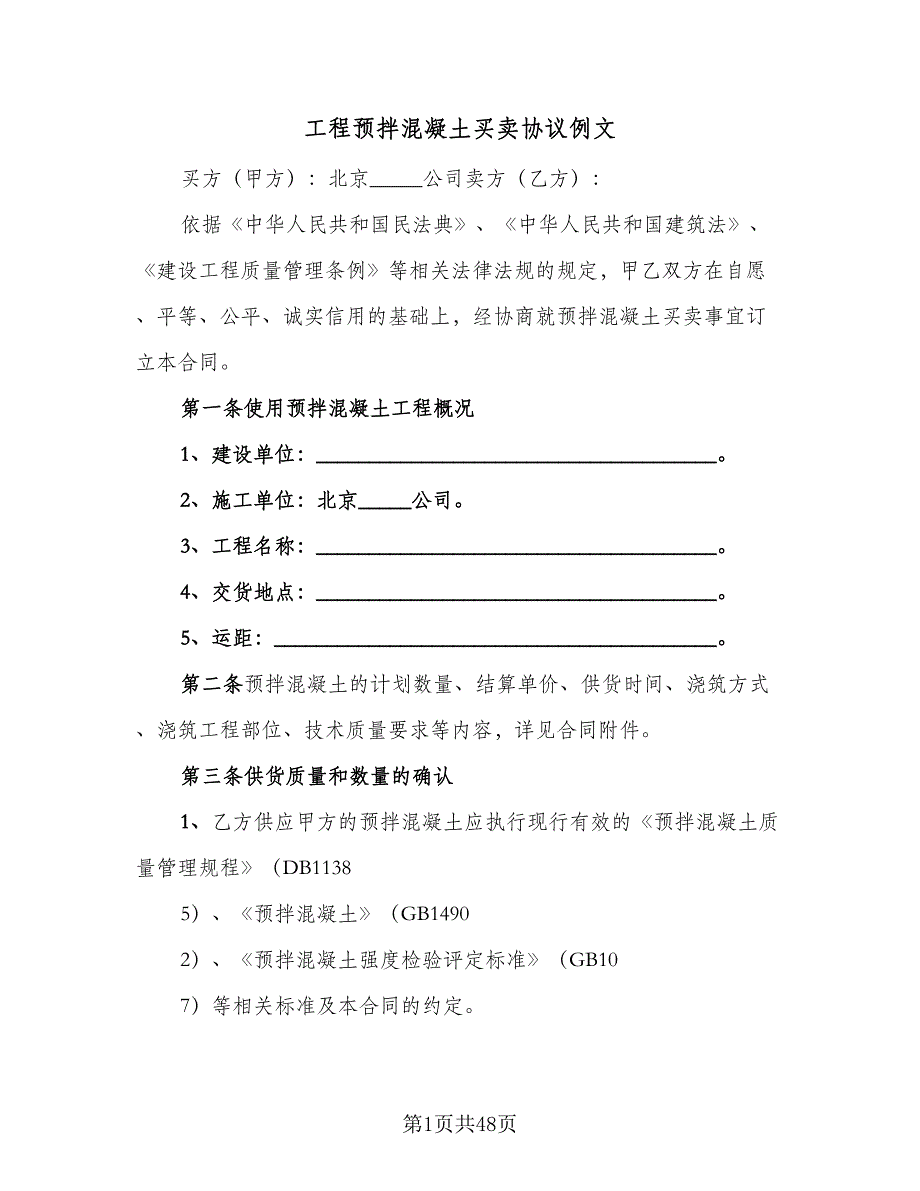 工程预拌混凝土买卖协议例文
买方（甲方）：北京_____公司卖方（乙方）：
依据《中华人民共和国民法典》、《中华人民共和国建筑法》、
《建设工程质量管理条例》等相关法律法规的规定，甲乙双方在自愿
、平等、公平、诚实信用的基础上，经协商就预拌混凝土买卖事宜订
立本合同。
第一条使用预拌混凝土工程概况
1、建设单位：______________________________________。
2、施工单位：北京_____公司。
3、工程名称：______________________________________。
4、交货地点：______________________________________。
5、运距：__________________________________________。
第二条预拌混凝土的计划数量、结算单价、供货时间、浇筑方式
、浇筑工程部位、技术质量要求等内容，详见合同附件。
第三条供货质量和数量的确认
1、乙方供应甲方的预拌混凝土应执行现行有效的《预拌混凝土质
量管理规程》（DB1138
5）、《预拌混凝土》（GB1490
2）、《预拌混凝土强度检验评定标准》（GB10
7）等相关标准及本合同的约定。
第1页共48页